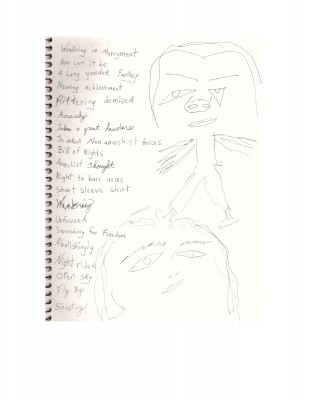 Wondering in Marryment
How can it be
a Long yonder Fantasy
Meaning achievement
Pittering demised
Anarchy
Takes a great leaders
To defeat Non anarchist forces
Bill of Rights
Anarchist Thought
Right to bare arms
Short sleeve shirt
Wandering
Unfocused
Searching for Freedom
Abolishingly
Night rider
Open sky
Fly Bys
Shooting